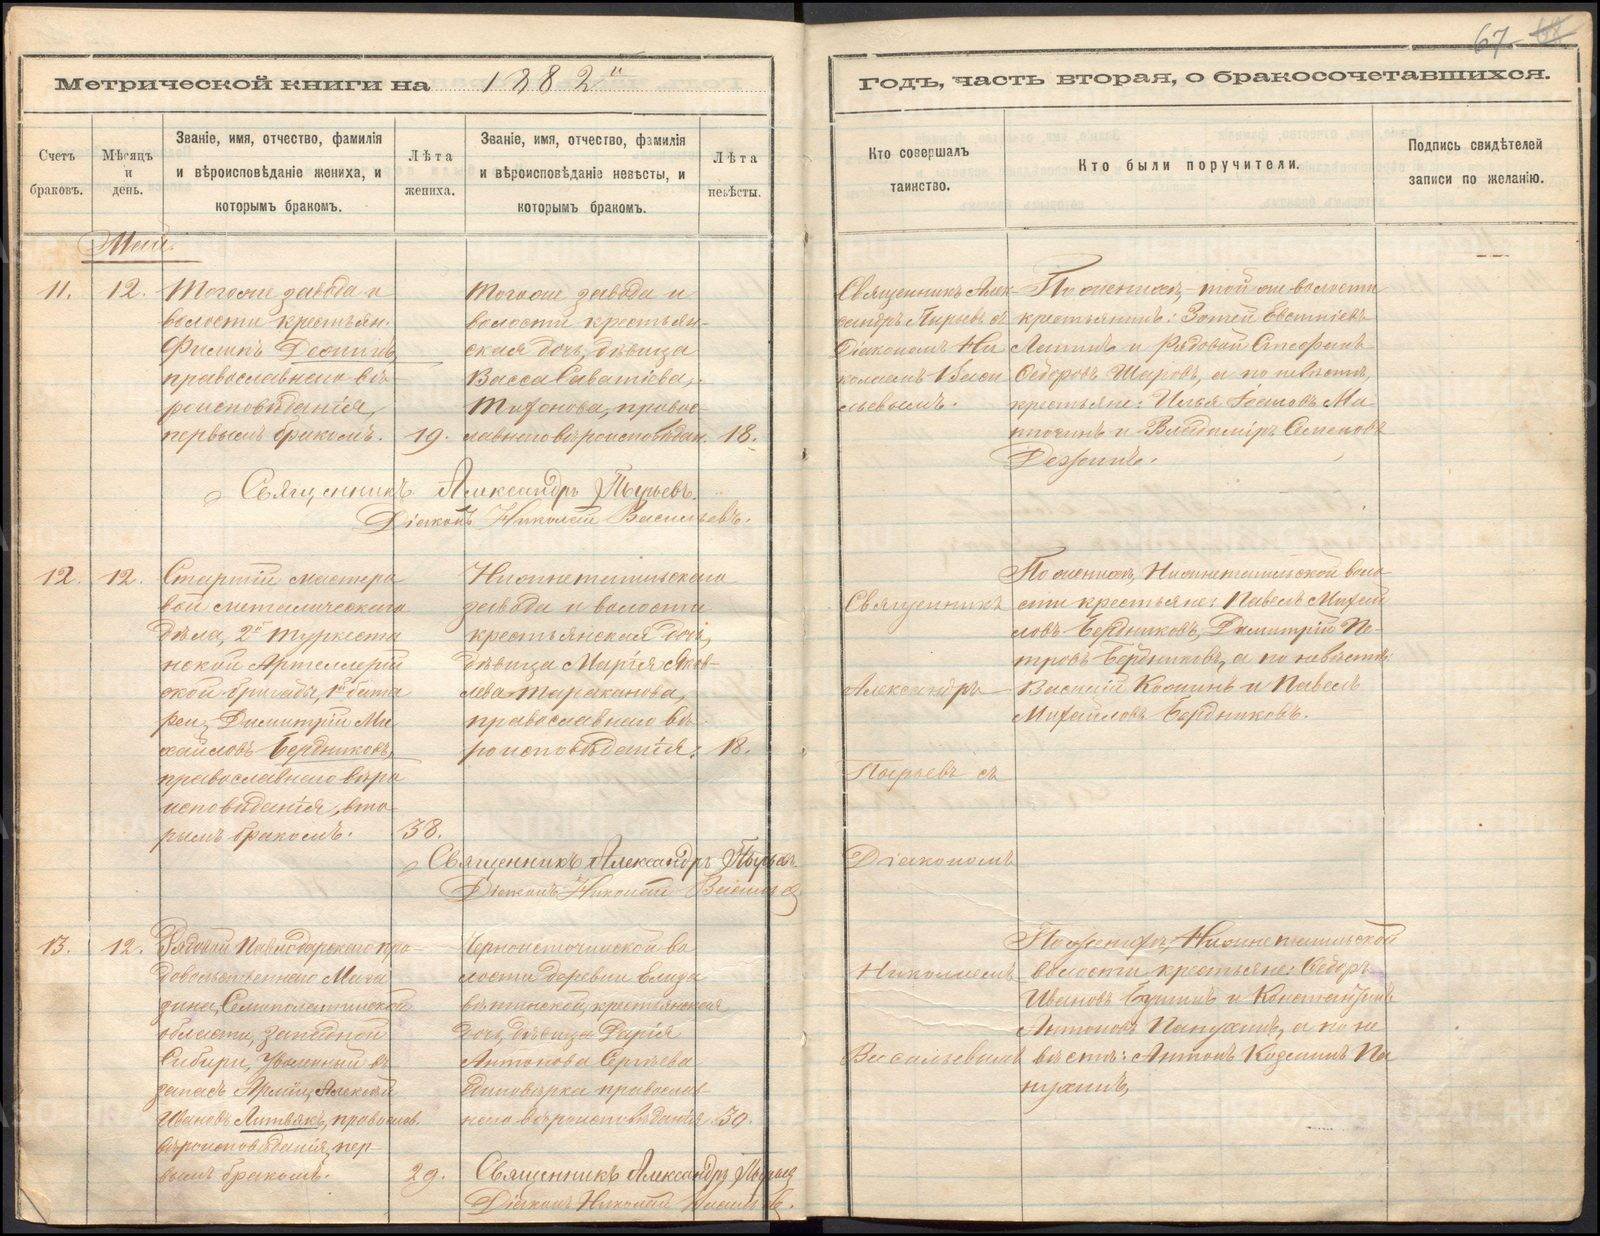 67 68
Метрической книги на 1882й
Годъ, часть вторая, о бракосочетавшихся.
Счетъ браковъ.
Мѣсяцъ и день.
Званіе, имя, отчество, фамилія
и вѣроисповѣданіе жениха, и
которымъ бракомъ.
Лѣта
жениха.
Званіе, имя, отчество, фамилія
и вѣроисповѣданіе невѣсты, и
которымъ бракомъ.
Лѣта
невѣсты.
Кто совершалъ
таинство.
Кто были поручители.
Подпись свидѣтелей
записи по желанію.
Май.
11. 12.
Тогоже завода и
волости крестьян.
Филипъ
православнаго вѣ-
роисповѣданія,
первымъ бракомъ. 19.
Тогоже завода и
волости крестьян-
ская дочь, дѣвица
Васса Саватіева,
Тифонова, правос-
лавнаго вѣроисповѣдан. 18.
Священникъ Алек-
сандръ Пырьевъ съ
Діакономъ Ни
колаемъ Васи
льевымъ.
По женихѣ, той же волости
крестьянинъ: Зотей Евстиѳіевъ
Лапинъ и Рядовой Стефанъ
Ѳедоровъ Шаровъ, а по невѣстѣ,
крестьяне: Илья Ма-
и Владиміръ Семеновъ
Священникъ Александръ Пырьевъ.
Діаконъ Николай Васильевъ.
12. 12.
Старшій мастеро
вой металическаго
дѣла, 2й Туркеста
нской Артеллерій
ской бригады, 1й бата
реи, Димитрій Ми
хайловъ Бердниковъ,
православнаго вѣро
исповѣданія, вто-
рымъ бракомъ. 38.
Нижнетагильскаго
завода и волости
крестьянская дочь,
дѣвица Марія Яков-
лева Тараканова,
православнаго вѣ-
роисповѣданія. 18.
Священникъ
Александръ
Пырьевъ съ
Діакономъ
Николаемъ
Васильевымъ
По женихѣ, Нижнетагильской воло-
сти крестьяне: Павелъ Михай
ловъ Бердниковъ, Димитрій Пе-
тровъ Бердниковъ, а по невѣстѣ
Василій и Павелъ
Михайловъ Бердниковъ.
Священникъ Александръ Пырьевъ
Діаконъ Николай Васильев
13. 12.
Рядовой Павлодарскаго про-
довольственнаго Мага
зина, Семипалатинской
области, западной
Сибири, уволенный въ
запасъ Арміи, Алексѣй
Ивановъ Литвякъ, правослов.
вѣроисповѣданія, пер-
вымъ бракомъ. 29.
Черноисточинской во
лости деревни Елиза
ветинской, крестьянская
дочь, дѣвица Дарія
Антонова Сергѣева
единовѣрка православ-
наго вѣроисповѣданія 30.
По женихѣ, Нижнетагильской
волости крестьяне: Ѳедоръ
Ивановъ и Константинъ
Антоновъ Папухинъ, а по не
вѣстѣ: Антонъ Козминъ Па
пухинъ,
Священникъ Александръ Пырьев
Діаконъ Николай Васильевъ.